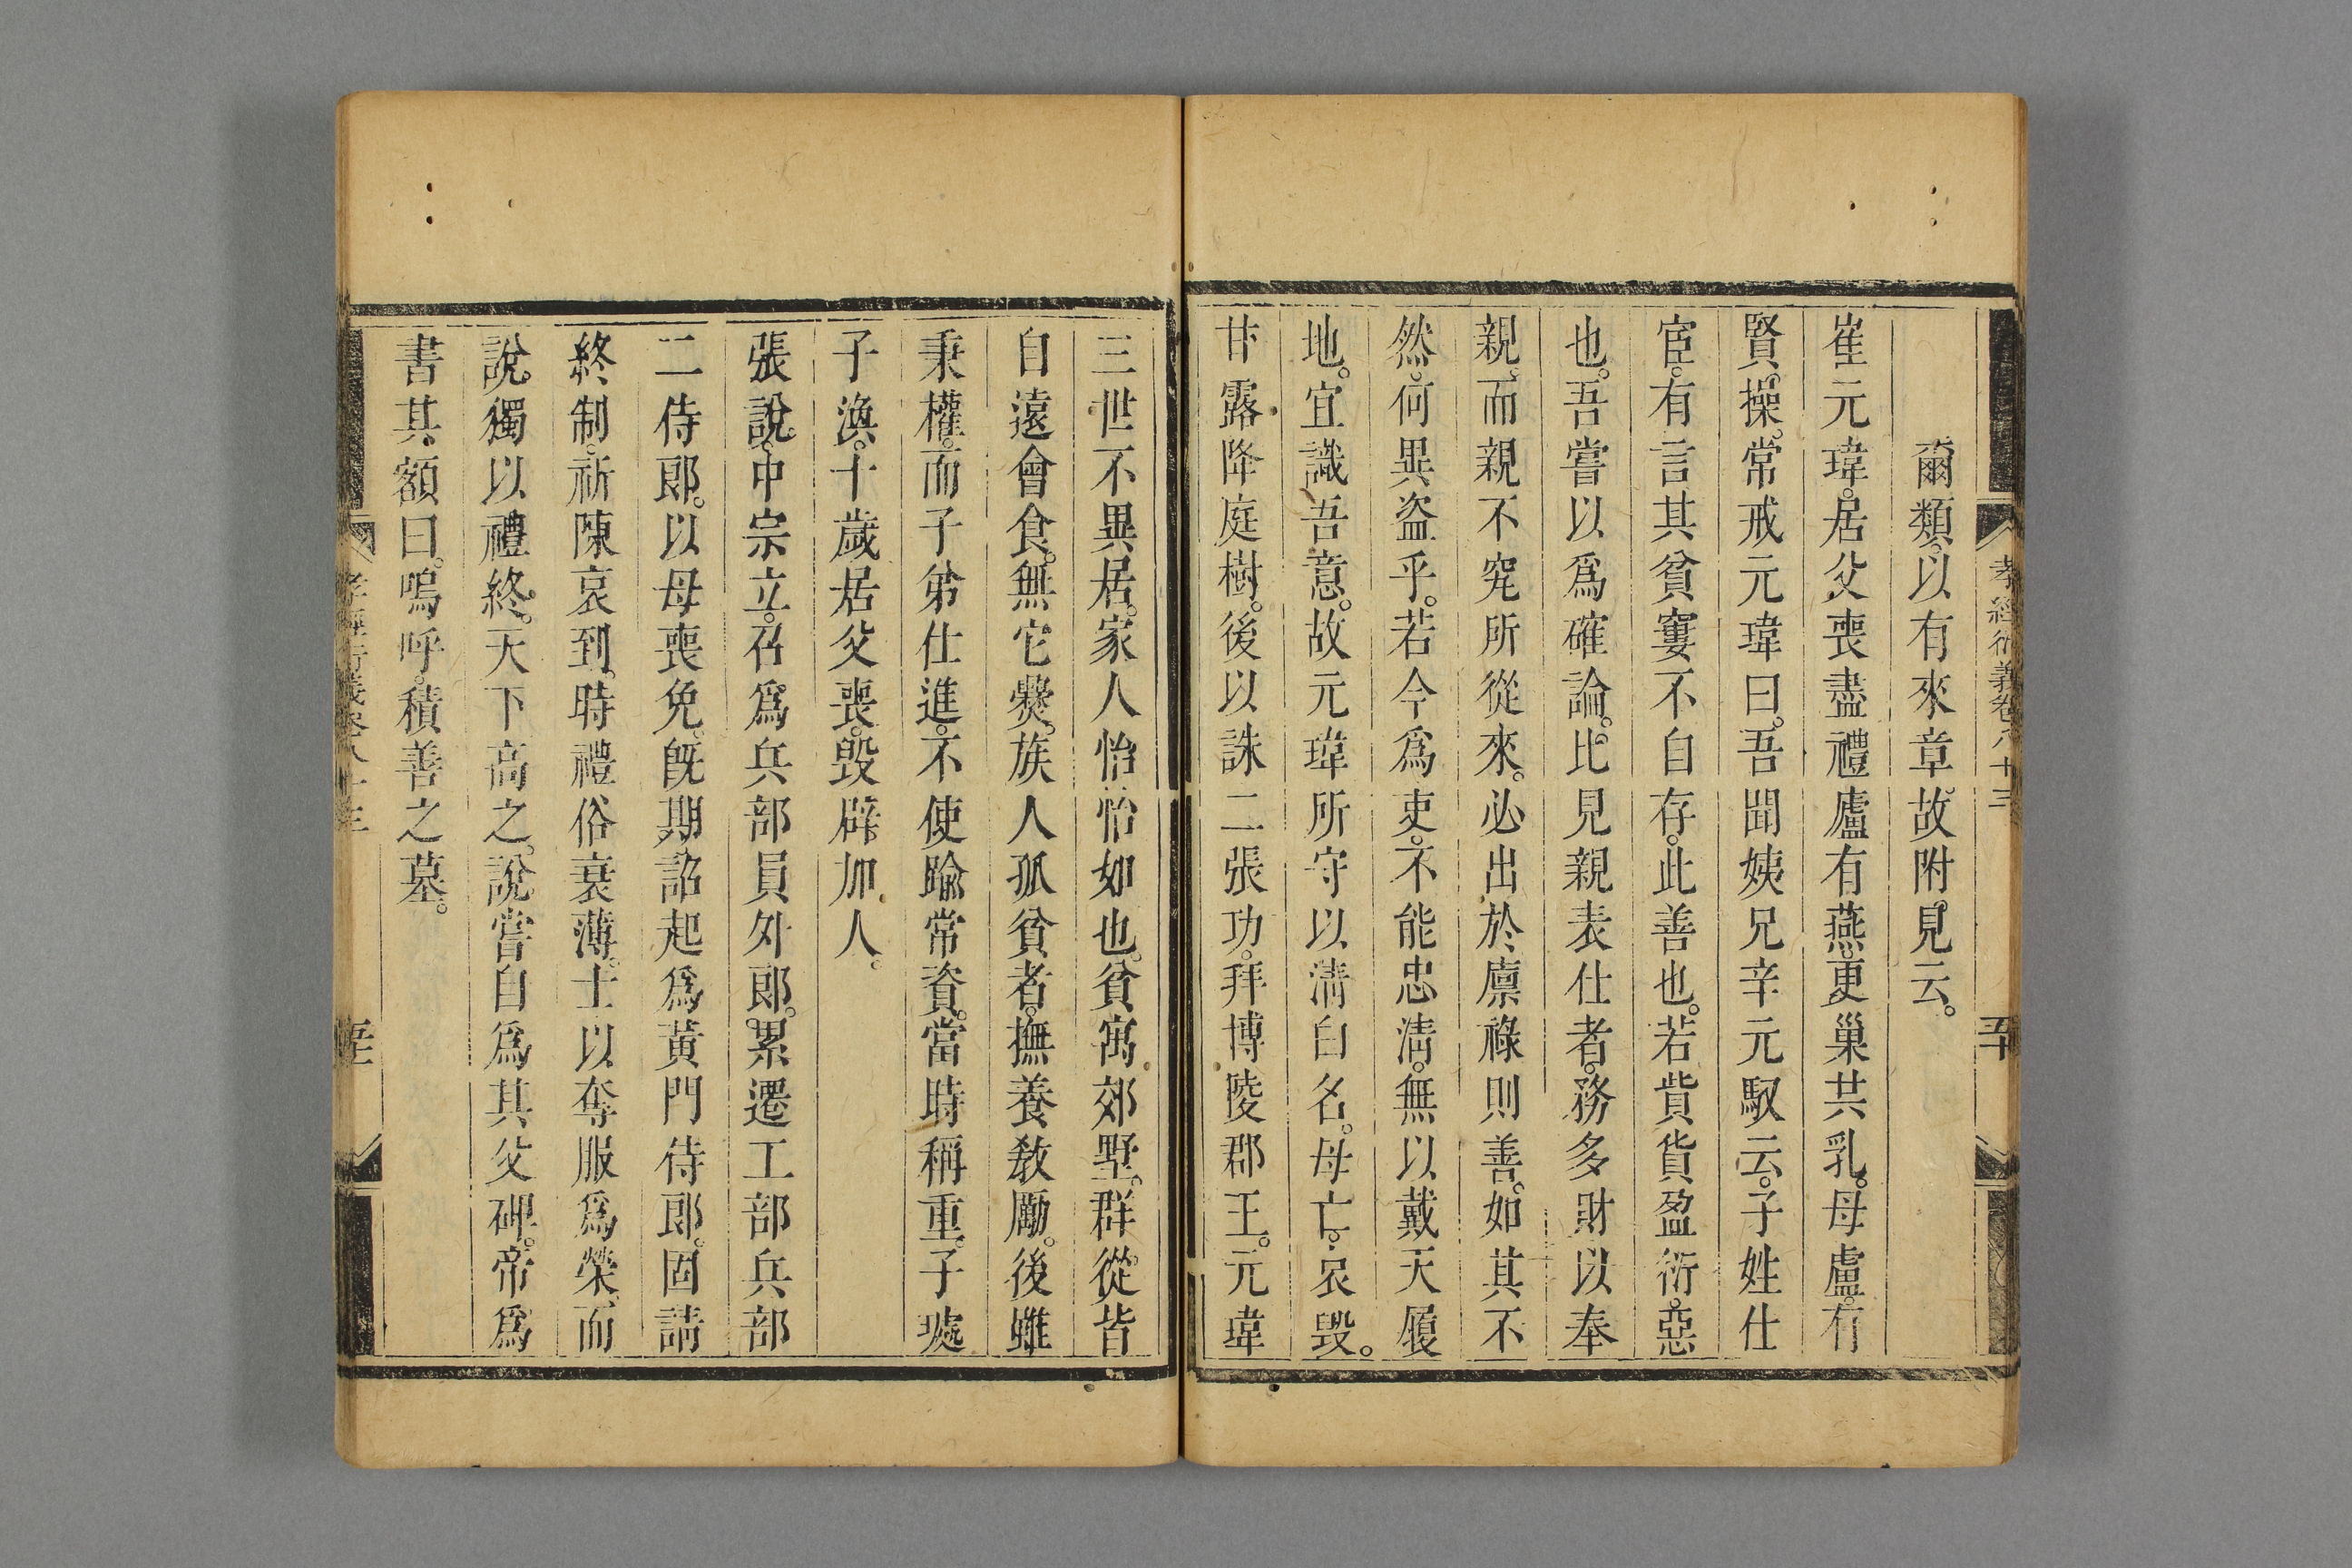 孝經衍義卷八十三
五十
爾類。以有來章故附見云。
崔元瑋。居父喪盡禮廬有燕更巢共乳。母盧。有
賢操。常戒元瑋曰。吾聞姨兄辛元馭云。子姓仕
宦。有言其貧窶不自存。此善也。若貲貨盈衍。惡
也。吾嘗以爲確論。比見親表仕者。務多財以奉
親。而親不究所從來。必出於廩祿則善。如其不
然。何異盜乎。若今爲吏。不能忠淸。無以戴天履
地。宜識吾意。故元瑋所守以淸白名。母亡。哀毀。
甘露降庭樹。後以誅二張功。拜博陵郡王。元瑋
三世不異居。家人怡怡如也。貧寓郊墅。群從皆
自遠會食。無它爨。族人孤貧者。撫養教勵。後雖
秉權。而子弟仕進。不使踰常資。當時稱重。子璩
子渙。十歲居父喪。毀辟加人。
張說。中宗立。召爲兵部員外郎。累遷工部兵部
二侍郎。以母喪免。旣期。詔起爲黃門侍郎。固請
終制。祈陳哀到。時禮俗衰薄。士以奪服爲榮。而
說獨以禮終。天下高之。說嘗自爲其父碑。帝爲
書其額曰。嗚呼。積善之墓。
孝經衍義卷八十三